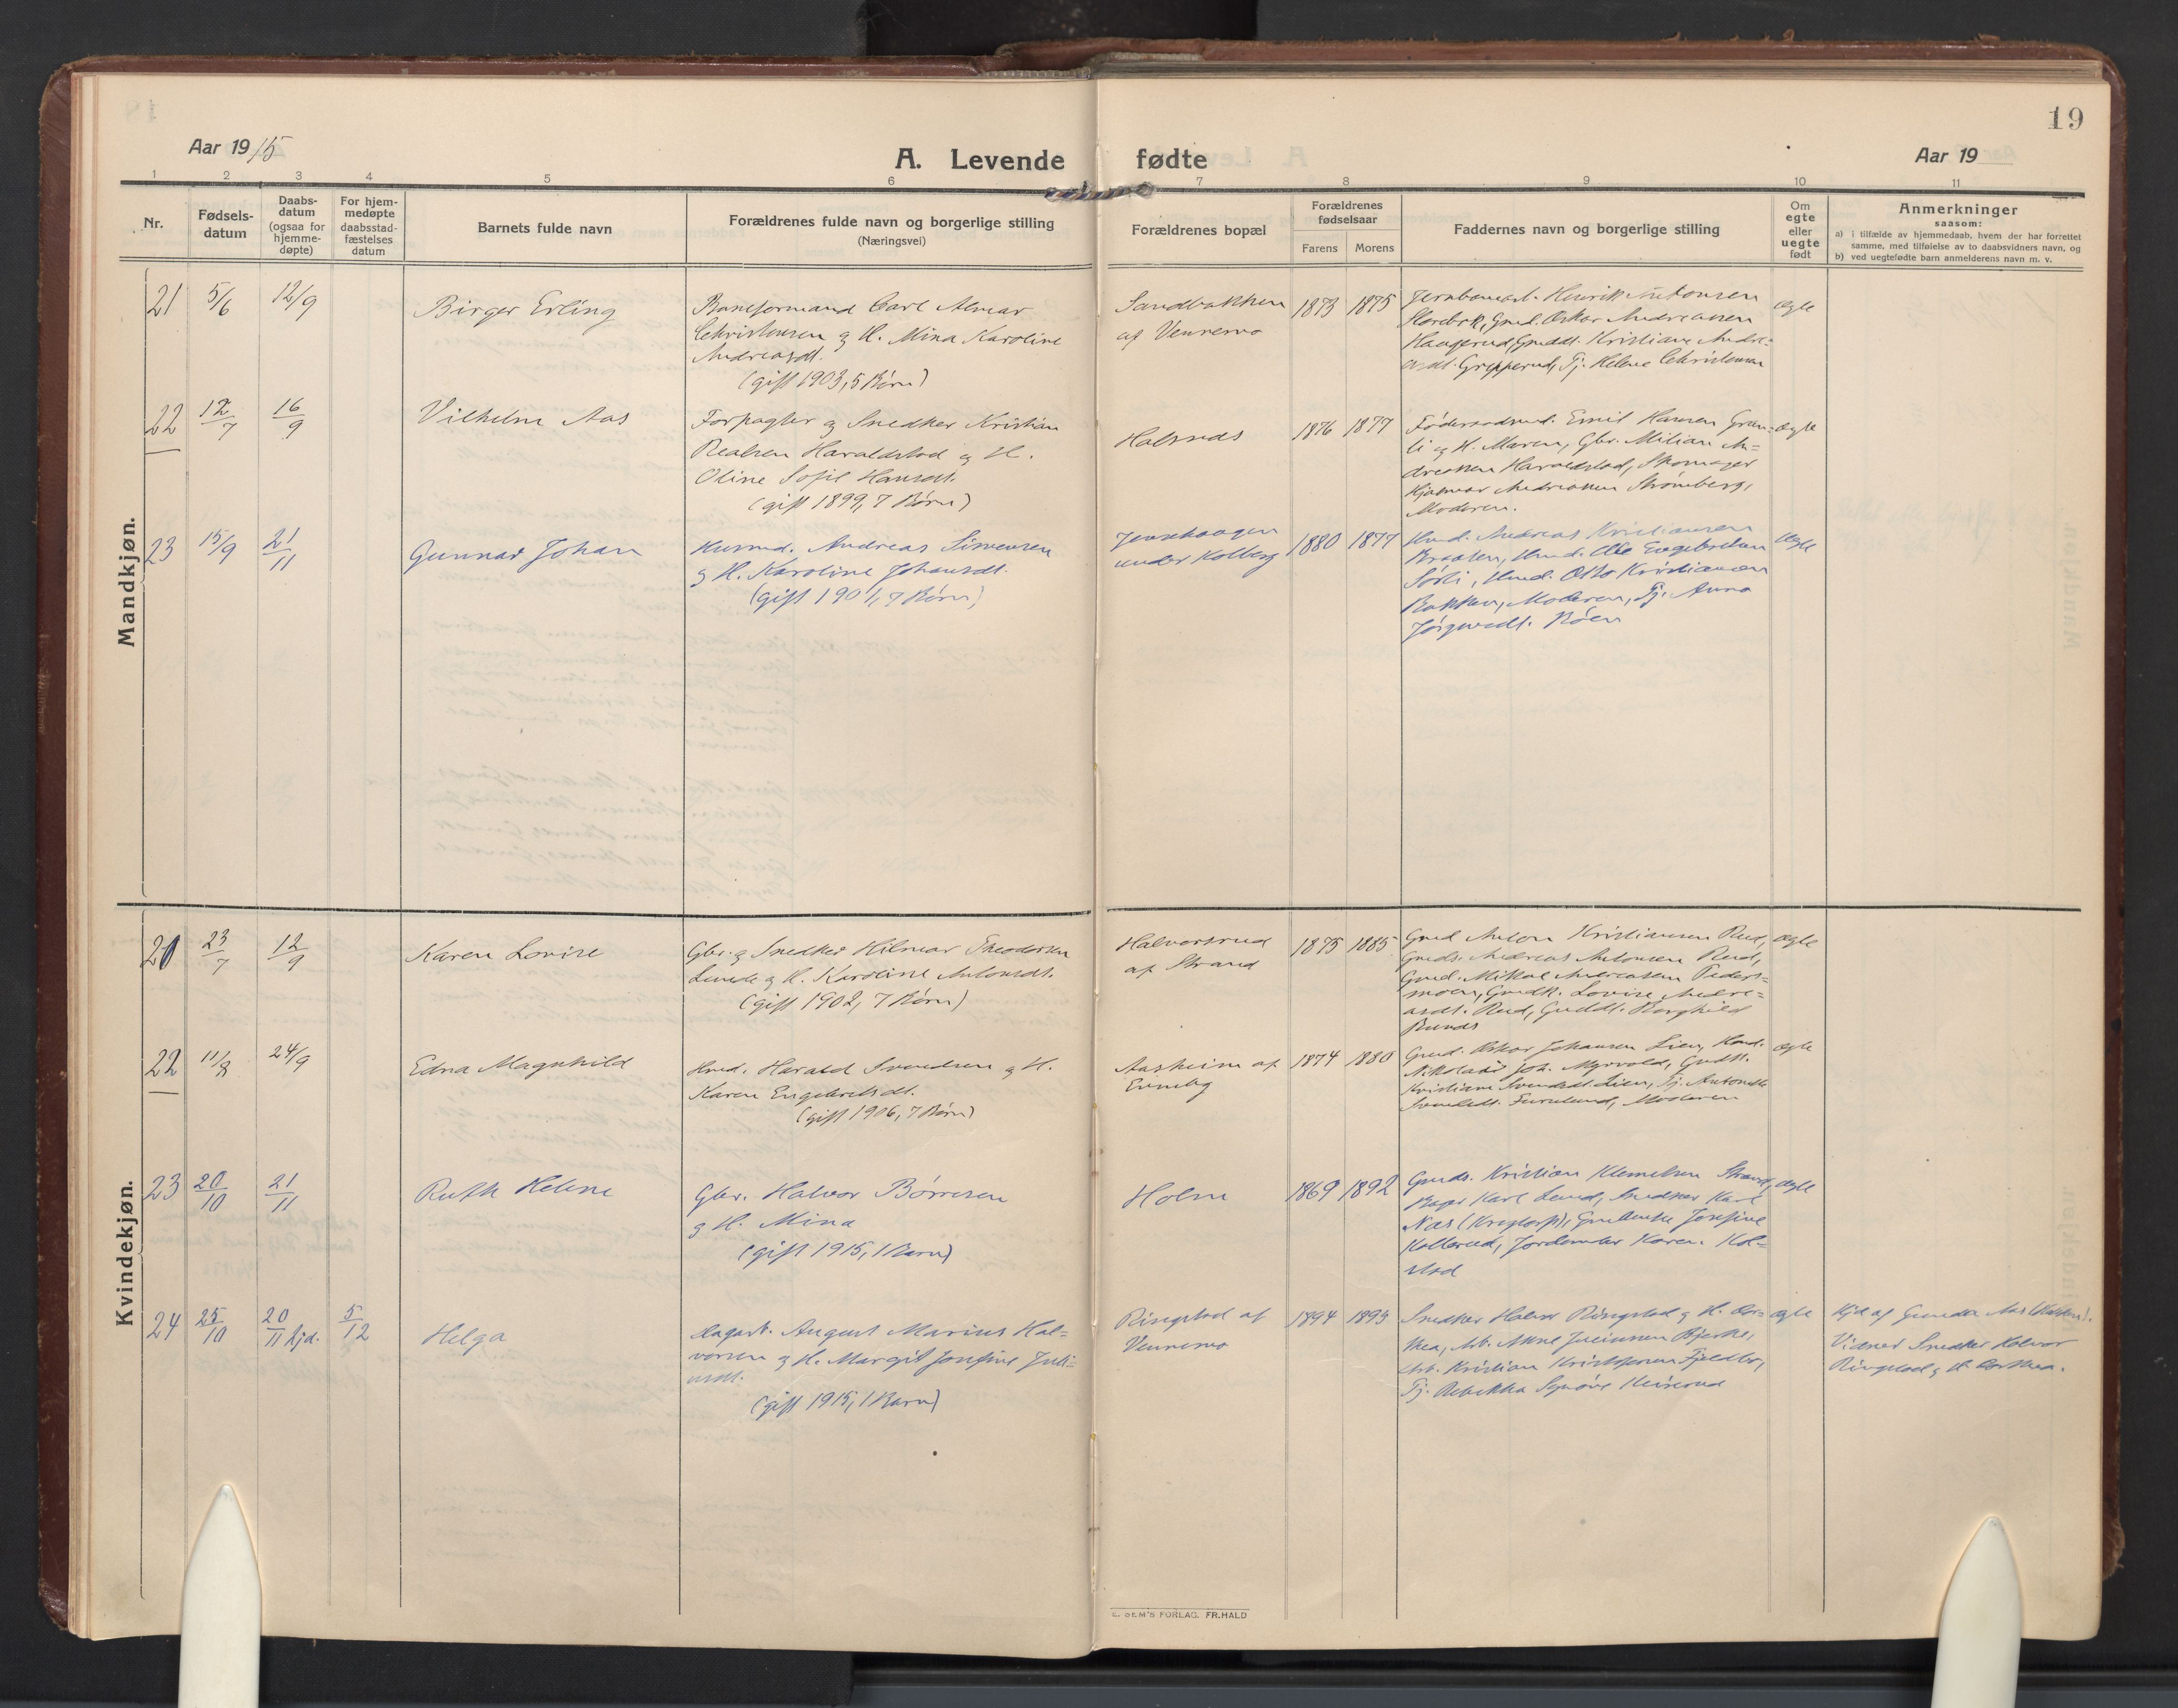 19
Aar 1915
A. Levende fødte
Aar 19
1 2 3 4 5 6 7 8 9 10 11
Nr.
Fødsels-
datum
Daabs-
datum
(ogsaa for
hjemme-
døpte)
For hjem-
medøpte
daabsstad-
fæstelses
datum
Barnets fulde navn
Forældrenes fulde navn og borgerlige stilling
(Næringsvei)
Forældrenes bopæl
Forældrenes
fødselsaar
Farens Morens
Faddernes navn og borgerlige stilling
Om
egte
eller
uegte
født
Anmerkninger
saasom:
a) i tilfælde av hjemmedaab, hvem der har forrettet
samme, med tilføielse av to daabsvidners navn, og
b) ved uegtefødte barn anmelderens navn m. v.
Mandkjøn.
21 5/6 12/9
Birger Erling
Baneformand Carl Almar
Christensen og H. Mina Karoline
Andreasdt.
(gift 1903, 5 Børn)
Sandbakken
af Vennemo
1873 1875
Jernbanearb. Henrik Antonsen
Gmd. Oskar Andreassen
Haugerud, Gmddt. Kristiane Andre-
asdt. Gripperud, Tj. Helene Christensen
Ægte
22 12/7 16/9
Vilhelm Aas
Forpagter og Snedker Kristian
Realsen Haraldstad og H.
Oline Sofie Hansdt.
(gift 1899, 7 Børn)
Halsnæs
1876 1877
Føderaadsmd. Emil Hansen Gran-
li og H. Maren, Gbr. Milian An-
dreassen Haraldstad, Skomager
Hjalmar Andreassen Strømberg,
Moderen.
Ægte
23 15/9 21/11
Gunnar Johan
Husmd. Andreas Simensen
og H. Karoline Johansdt.
(gift 1901, 7 Børn)
Jensehaugen
under Kolberg
1880 1877
Hmd. Andreas Kristiansen
Braaten, Hmd. Ole Engebretsen
Sørli, Hmd. Otto Kristiansen
Bakken, Moderen, Tj. Anna
Røen
Ægte
Kvindekjøn.
21 23/7 12/9
Karen Lovise
Gbr. og Snedker Hilmar Theodorsen
Lunde og H. Karoline Antonsdt.
(gift 1902, 7 Børn)
Halvorsrud
af Strand
1875 1885
Gmd Anton Kristiansen Rud,
Gmds. Andreas Antonsen Rud,
Gmd. Mikal Andreasen Peders-
moen, Gmdk. Lovise Andre-
asdt. Rud, Gmddt. Borghild
Rud
ægte
22 11/8 24/9
Edna Magnhild
Hmd. Harald Svendsen og H.
Karen Engebretsdt.
(gift 1906, 7 Børn)
Aasheim af
Enneby
1874 1880
Gmd. Oskar Johansen Lien, Hand.
Nikolai Joh. Myrvold, Gmdt.
Kristiane Svendsdt. Lien, Tj. Antonette
Svendsdt. Furulund, Moderen
ægte
23 20/10 21/11
Ruth Helene
Gbr. Halvor Børresen
og H. Mina
(gift 1915, 1 Barn)
Holm
1869 1892
Gmds. Kristian Klemetsen Strand,
Bager Karl Lund, Snedker Karl
Næs (Kragtorp), Gmdenke Josefine
Kollerud, Jordemoder Karen Kol-
stad
ægte
24 25/10 20/11 hjd. 5/12
Helga
Dagarb. August Marius Hal-
vorsen og H. Margit Josefine Juli-
usdt.
(gift 1915, 1 Barn)
Ringstad af
Vennemo
1894 1893
Snedker Halvor Ringstad og H. Dor-
thea, Arb. Arne Juliussen Bjerke,
Arb. Kristian Kristoffersen Fjeldbr,
Tj. Rebekka
ægte
Hjd af Gunda Aas
Vidner Snedker Halvor
Ringstad og H. Dorthea.
E. SEM'S FORLAG. FR.HALD